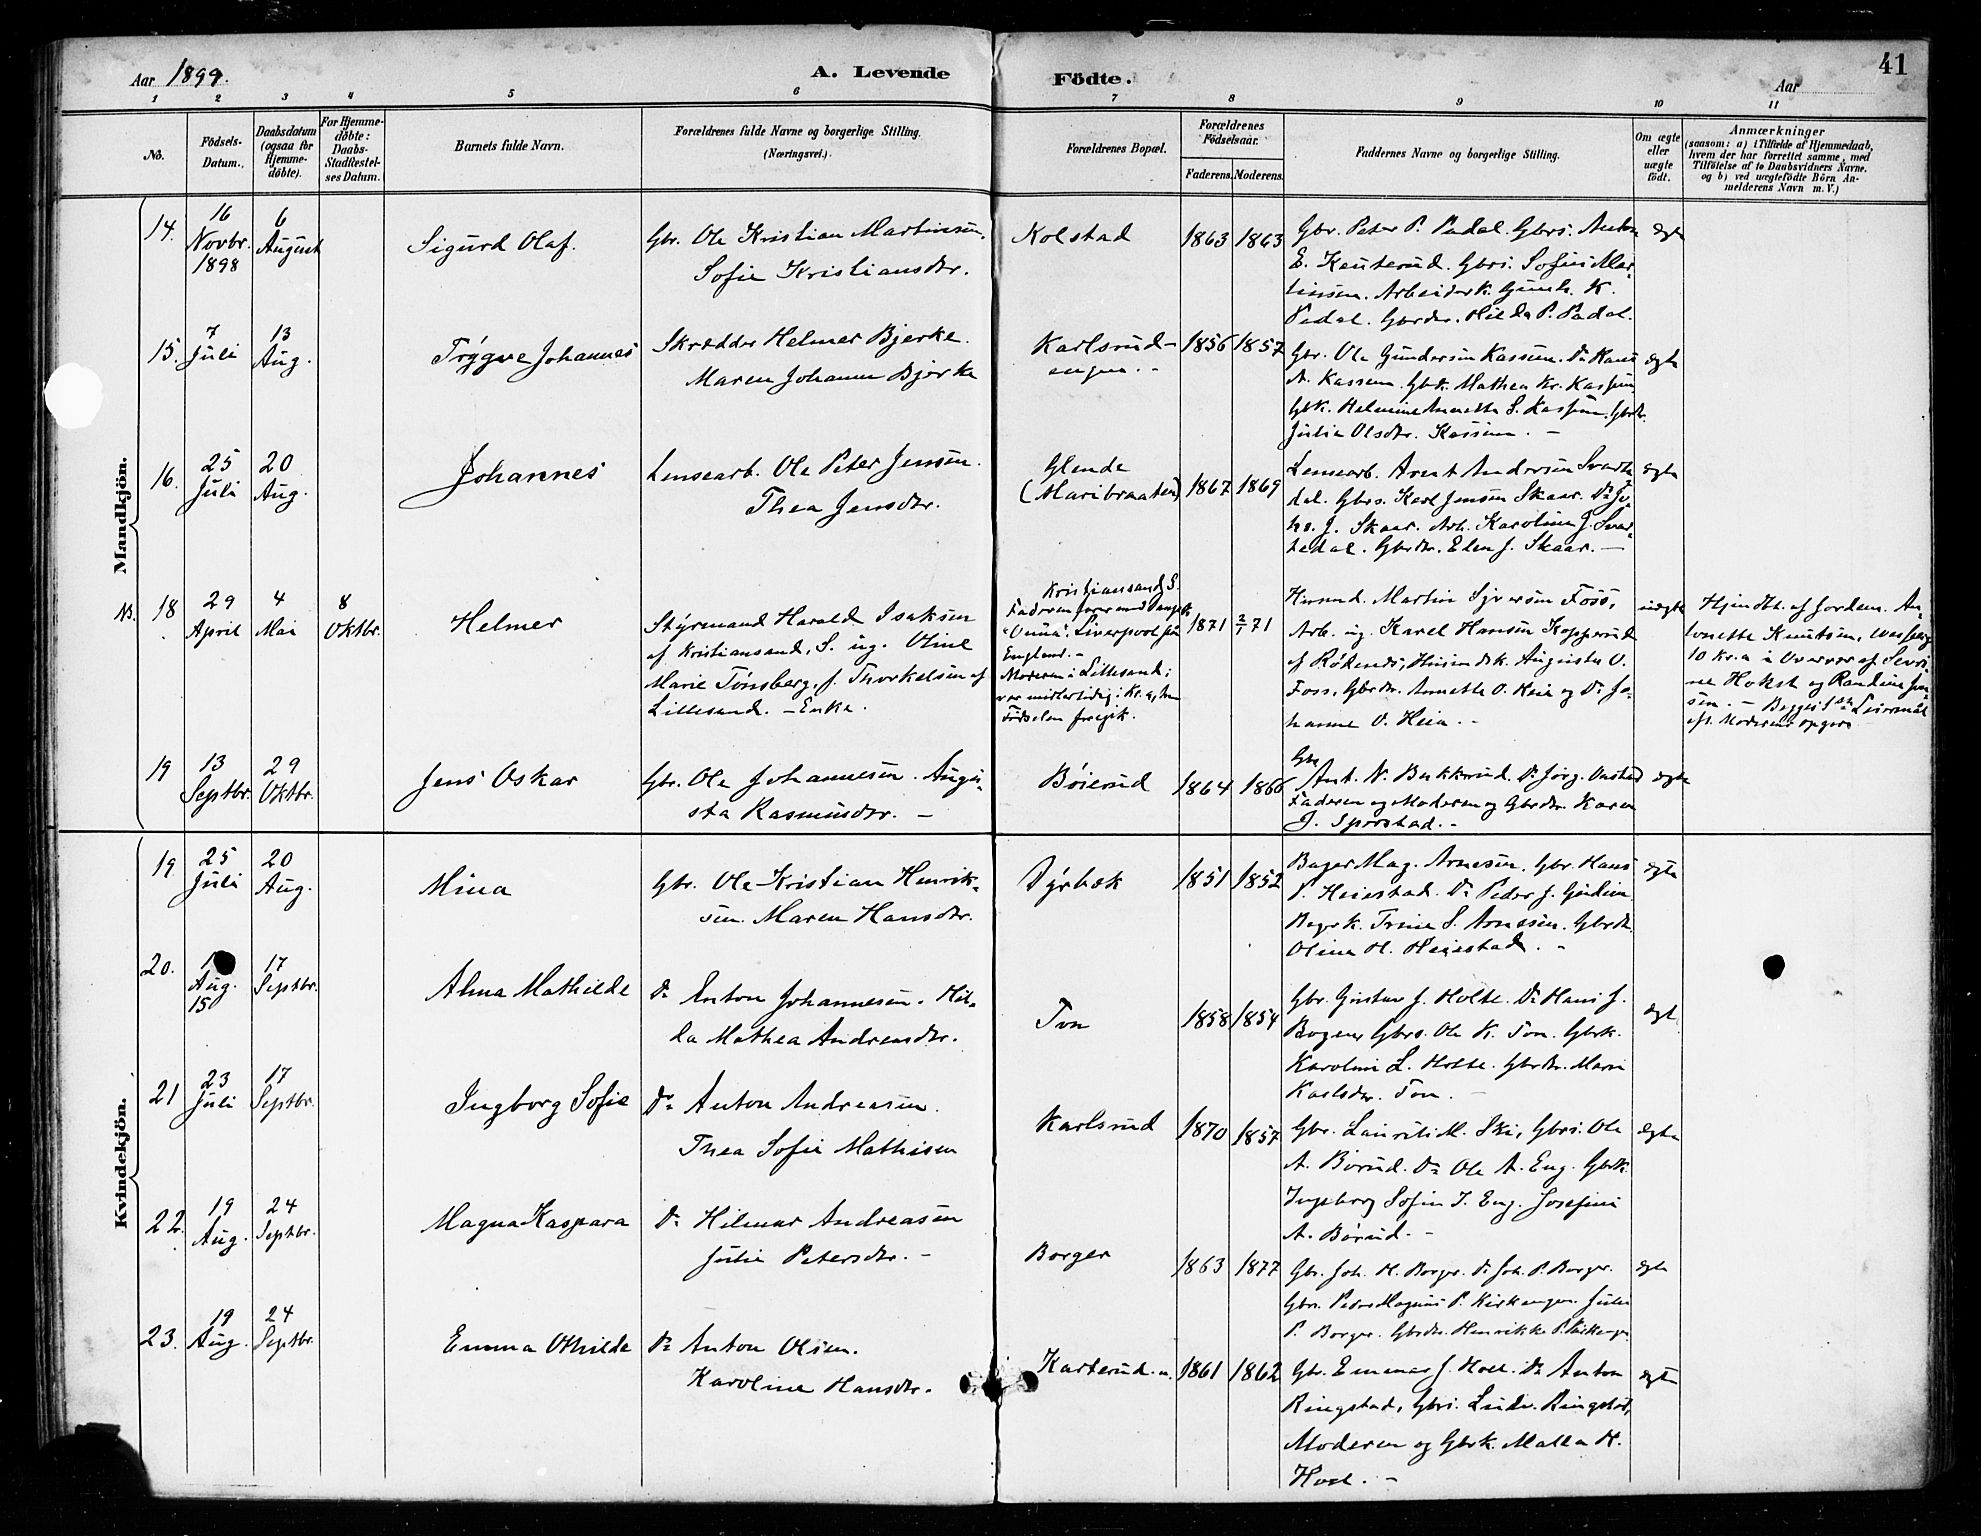 Aar 1899.
A. Levende
Födte.
Aar
41
1 2 3 4 5 6 7 8 9 10 11
No.
Födsels-
Datum.
Daabsdatum
(ogsaa for
Hjemme-
døbte).
For Hjemme-
døbte:
Daabs-
Stadfæstel-
ses Datum.
Barnets fulde Navn.
Forældrenes fulde Navne og borgerlige Stilling.
(Næringsvei.)
Forældrenes Bopæl.
Forældrenes
Födselsaar.
Faderens. Moderens.
Faddernes Navne og borgerlige Stilling.
Om ægte
eller
uægte
født.
Anmærkninger
(saasom: a) i Tilfælde af Hjemmedaab,
hvem der har forrettet samme, med
Tilføielse af to Daabsvidners Navne,
og b) ved uægtefødte Börn An-
melderens Navn m. V.)
Mandkjön.
14.
16
Novbr.
1898
6
August
Sigurd Olaf.
Gbr. Ole Kristian Martinsen.
Sofie Kristiansdtr.
Kolstad
1863 1863
Gbr. Peter P. Padal. Gbrs. Anton
E. Knuterud. Gbrs. Sofus Mar-
tinsen. Arbeiderk. Gunh. K.
Padal. Gbrdtr. Hilda P. Padal.
ægte
15.
7
Juli
13
Aug.
Trygve Johannes
Skrædder Helmer Bjerke.
Maren Johanne Bjerke
Karlsrud-
engen. -
1856 1857
Gbr. Ole Gundersen Kassen. Do Hans
A. Kassen. Gbk. Mathea Kr. Kassen
Gbk. Helmine Annette S. Kassen. Gbrdtr.
Julie Olsdtr. Kassen. -
ægte
16.
25
Juli
20
Aug.
Johannes
Lensearb. Ole Peter Jensen.
Thea Jensdtr.
Glende
(Maribraaten)
1867 1869
Lensearb. Arent Andersen Svarte
dal. Gbrs. Karl Jensen Skaar. Do Jo-
hs. J. Skaar. Arb. Karoline J. Svar-
tedal. Gbrdtr. Elen J. Skaar. -
ægte
NB. 18
29
April
4
Mai
8
Oktbr.
Helmer
Styrmand Harald Isaksen
af Kristiansand, S. ug. Oline
Marie Tönsberg, f. Thorkelsen af
Lillesand. - Enke.
Kristiansand S.
Faderen farer med
"Unna", Liverpool paa
England. -
Moderen i Lillesand;
var midlertidig i Kr.a, hvor
Fødselen foregik.
1871 2/1 71
Husmd. Martin Syversen Foss,
Arb. ug. Karel Hansen Kopperud
af Rødenes, Husmdsk. Augusta O.
Foss, Gbrdtr. Annette O. Heia og Do Jo-
hanne O. Heia. -
uægte
Hjmdbt. af Jordem. An-
tonette Knutsen,
10 Kr.a i Overvær af Seve-
rine Hokst og Randine Jen-
sen. - Begges 1ste Leiermaal
eft. Moderens Opgave
19
13
Septbr.
29
Oktbr.
Jens Oskar
Gbr. Ole Johannesen. Augu-
sta Rasmusdtr. -
Böierud
1864 1866
Gbr.
Ant. N. Bukkerud. Do Jörg. Onstad
Faderen og Moderen og Gbrdtr. Karen
J. Sperstad. -
ægte
Kvindekjön.
19
25
Juli
20
Aug.
Mina
Gbr. Ole Kristian Henrik-
sen. Maren Hansdtr.
Dyrbæk
1851 1852
Bager Mag. Arnesen. Gbr. Hans
P. Heiestad. Do Peder J. Gjulem
Bagrk. Trine S. Arnesen. Gbrdtr.
Oline H. Heiestad. -
ægte
20.
Aug.
15
17
Septbr.
Alma Mathilde
Do Anton Johannesen. Hil-
da Mathea Andreasdtr.
Ton
1858 1854
Gbr. Gustav J. Holte. Do Hans J.
Bogen, Gbrs. Ole K. Ton. Gbrk.
Karoline L. Holte. Gbrdtr. Marie
Karlsdtr. Ton. -
ægt
21
23
Juli
17
Septbr.
Ingborg Sofie
Do Anton Andreasen.
Thea Sofie Mathisen
Karlsrud
1870 1857
Gbr. Laurits M. Ski, Gbrs. Ole
A. Börud. Do Ole A. Eng. Gbrk.
Ingeborg Sofie I. Eng. Josefine
A. Börud. -
ægte
22.
19
Aug.
24
Septbr.
Magna Kaspara
Do Hilmar Andreasen
Julie Petersdtr. -
Borger
1863 1877
Gbr. Joh. H. Borger. Do Joh. P. Borger.
Gbrs. Peder Magnus P. Kirkengen. Julie
P. Borger. Gbrdtr. Henrikke P. Kirkengen
ægte
23.
19
Aug.
24
Septbr.
Emma Othilde
Do Anton Olsen.
Karoline Hansdtr.
Karterud. u.
1861 1862
Gbr. Emmar J. Hoel. Do Anton
Ringstad, Gbrs. Ludv. Ringstad,
Moderen og Gbrk. Malla H.
Hoel. -
ægte